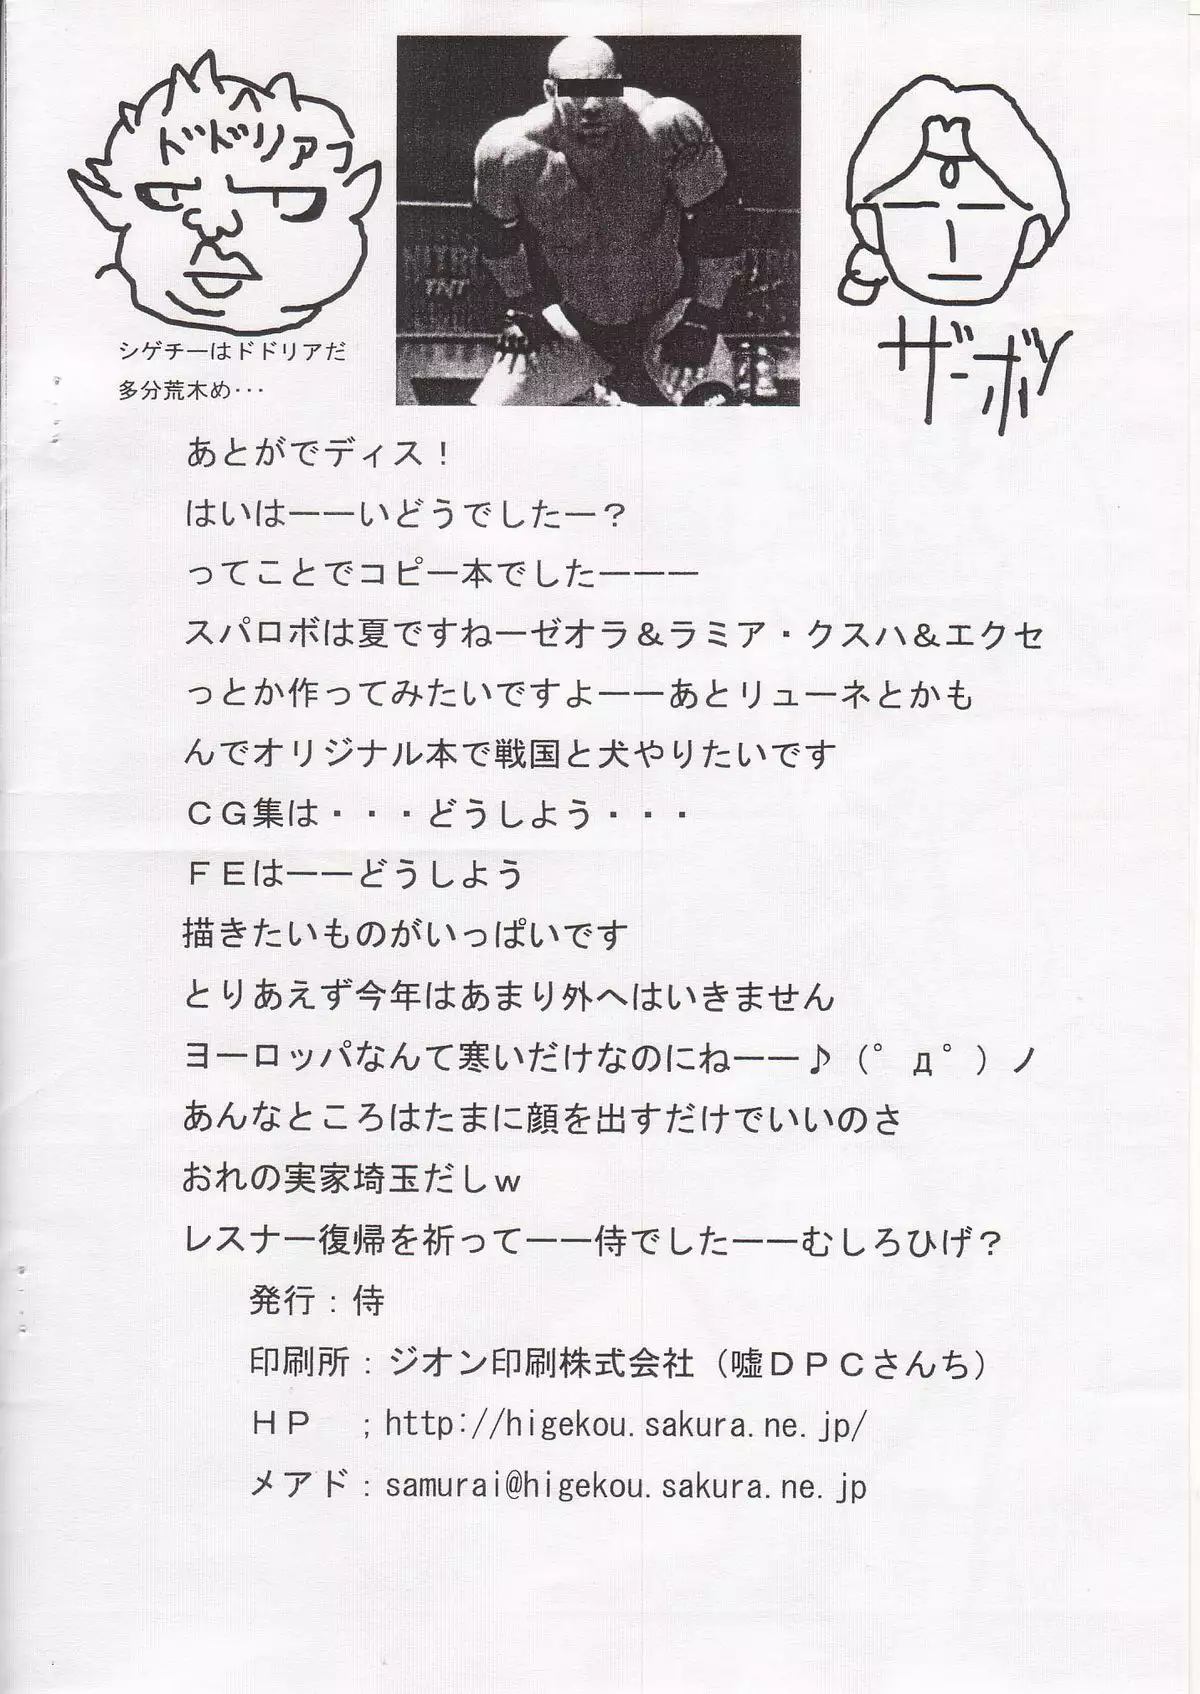 ドドリアっ
シゲチーはドドリアだ
多分荒木め・・・
TNT
ザーボン
あとがでディス！
はいはーーいどうでしたー？
ってことでコピー本でしたーーー
スパロボは夏ですねーゼオラ＆ラミア・クスハ＆エクセ
っとか作ってみたいですよーーあとリューネとかも
んでオリジナル本で戦国と犬やりたいです
ＣＧ集は・・・どうしよう・・・
ＦＥはーーどうしよう
描きたいものがいっぱいです
とりあえず今年はあまり外へはいきません
ヨーロッパなんて寒いだけなのにねーー♪（゜д゜）ノ
あんなところはたまに顔を出すだけでいいのさ
おれの実家埼玉だしｗ
レスナー復帰を祈ってーー侍でしたーーむしろひげ？
発行：侍
印刷所：ジオン印刷株式会社（嘘ＤＰＣさんち）
ＨＰ　；http://higekou.sakura.ne.jp/
メアド：samurai@higekou.sakura.ne.jp